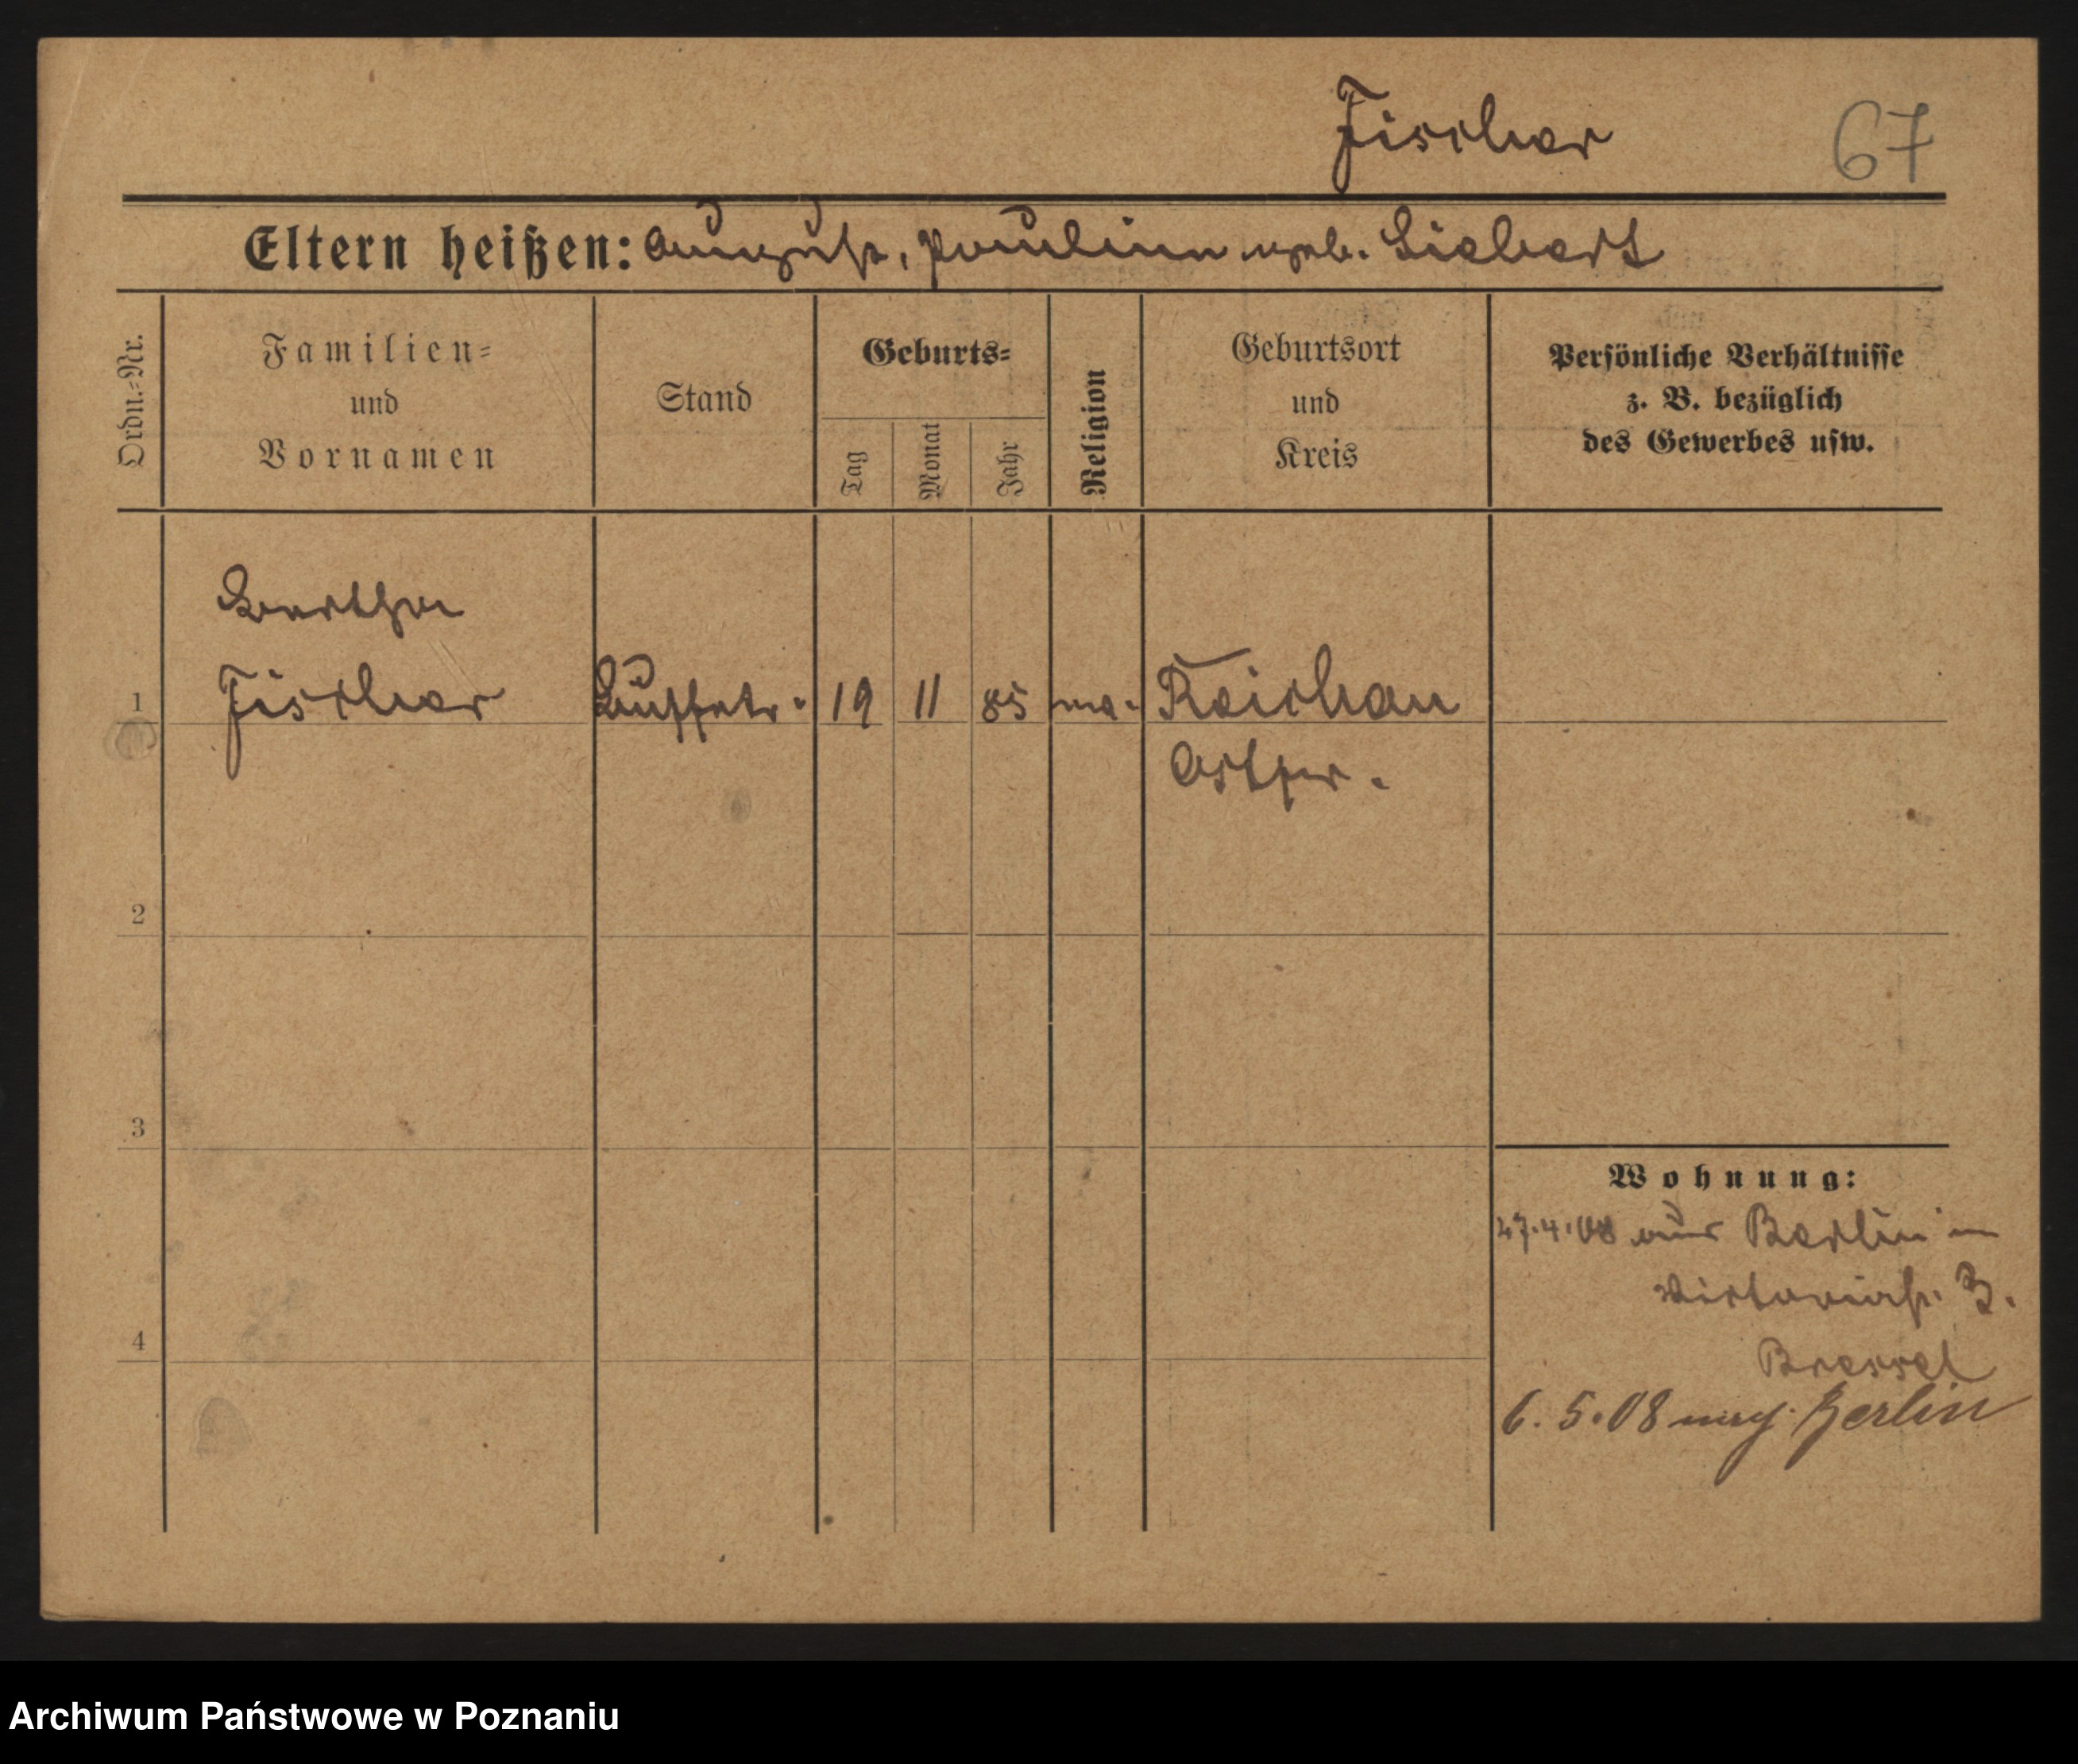 Fischer 67
Eltern heißen: August, Pauline geb. Siebert
Ordn.-Nr.
Familien-
und
Vornamen
Stand
Geburts-
Tag
Monat
Jahr
Religion
Geburtsort
und
Kreis
Persönliche Verhältnisse
z. B. bezüglich
des Gewerbes usw.
Bertha
1 Fischer 19 11 85 Reichau
Ostpr.
2
3
4
Wohnung:
27.4.08 aus Berlin in
Victoriastr. 3.
6.5.08 Berlin
Archiwum Państwowe w Poznaniu